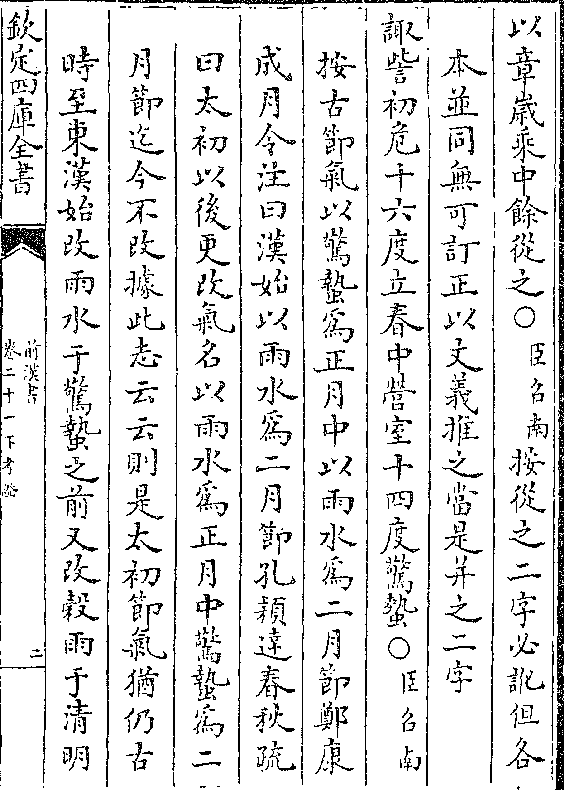 以章歳乘中餘從之○臣召南按從之二字必訛但各
本並同無可訂正以文義推之當是并之二字
諏訾初危十六度立春中營室十四度驚蟄○臣召南
按古節氣以驚蟄爲正月中以雨水爲二月節鄭康
成月令注曰漢始以雨水爲二月節孔穎達春秋疏
曰太初以後更改氣名以雨水爲正月中驚蟄爲二
月節迄今不改據此志云云則是太初節氣猶仍古
時至東漢始改雨水于驚蟄之前又改穀雨于清明
欽定四庫全書
前漢書
卷二十一下考證
二